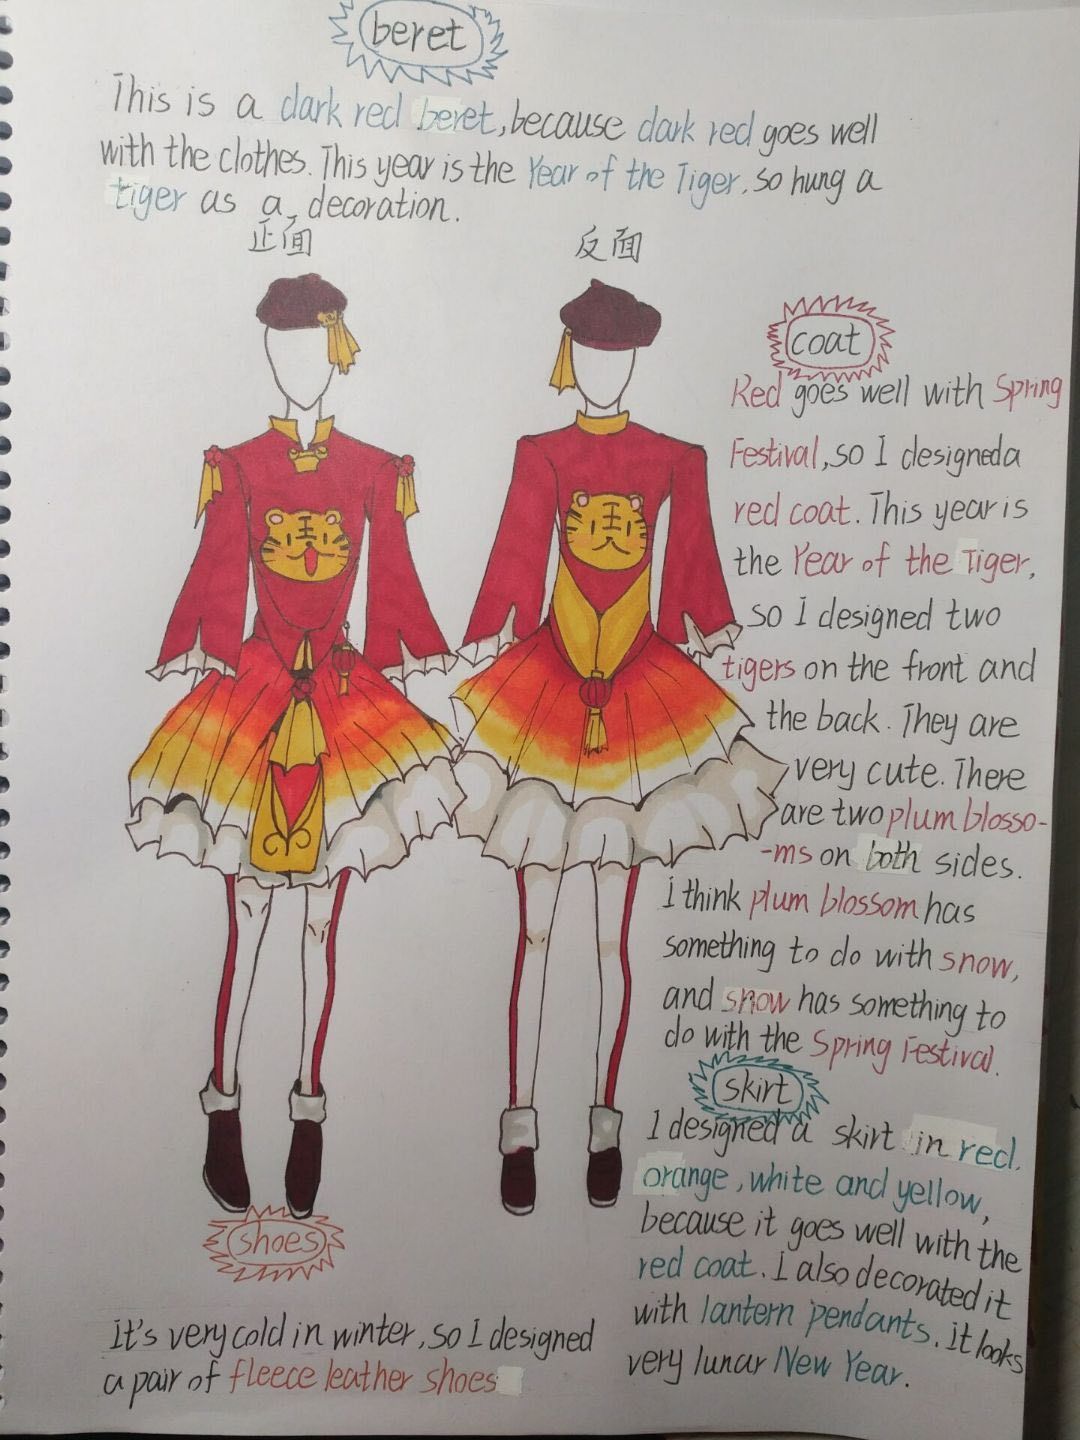 beret
This is a dark red beret, because dark red goes well
with the clothes. This year is the Year of the Tiger, so hung a
tiger as a decoration.
正面
反面
coat
Red goes well with Spring
Festival, so I designed a
red coat. This year is
the Year of the Tiger,
so I designed two
tigers on the front and
the back. They are
very cute. There
are two plum blosso-
-ms on both sides.
I think plum blossom has
something to do with snow,
and snow has something to
do with the Spring Festival.
skirt
I designed a skirt in red.
orange, white and yellow,
because it goes well with the
red coat. I also decorated it
with lantern pendants. It looks
very lunar New Year.
shoes
It's very cold in winter, so I designed
a pair of fleece leather shoes